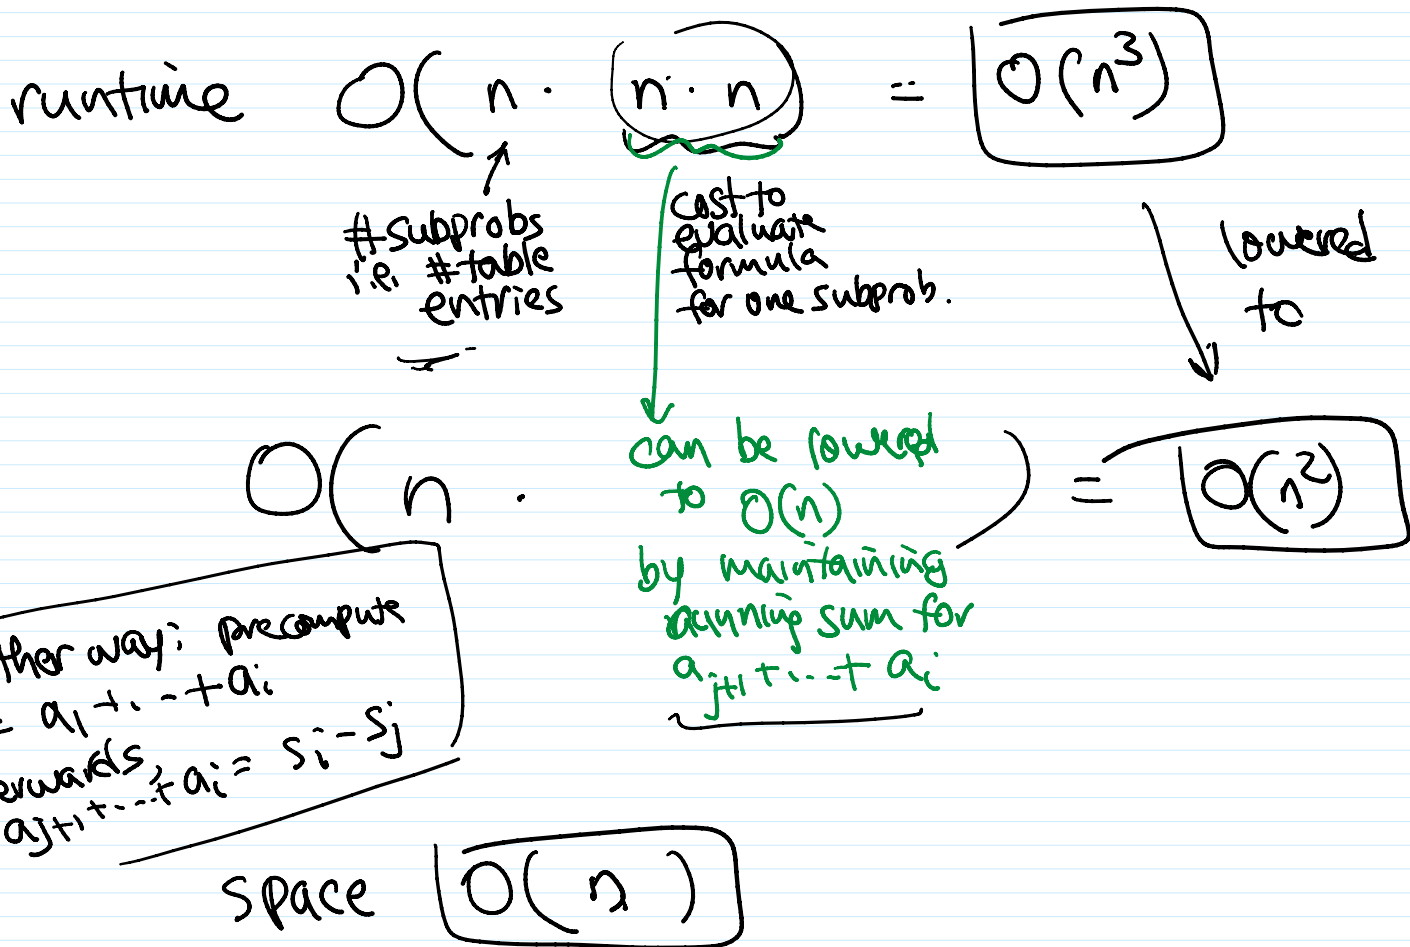 runtime O( n · (n · n) ) = O(n³)
#subprobs
i.e. #table
entries
cost to
evaluate
formula
for one subprob.
lowered
to
O( n ·
can be lowered
to O(n)
by maintaining
running sum for
a_{j+1} + ... + a_i
) = O(n²)
ther way: precompute
= a_1 + ... + a_i
erwards,
a_{j+1} + ... + a_i = s_i - s_j
space O( n )